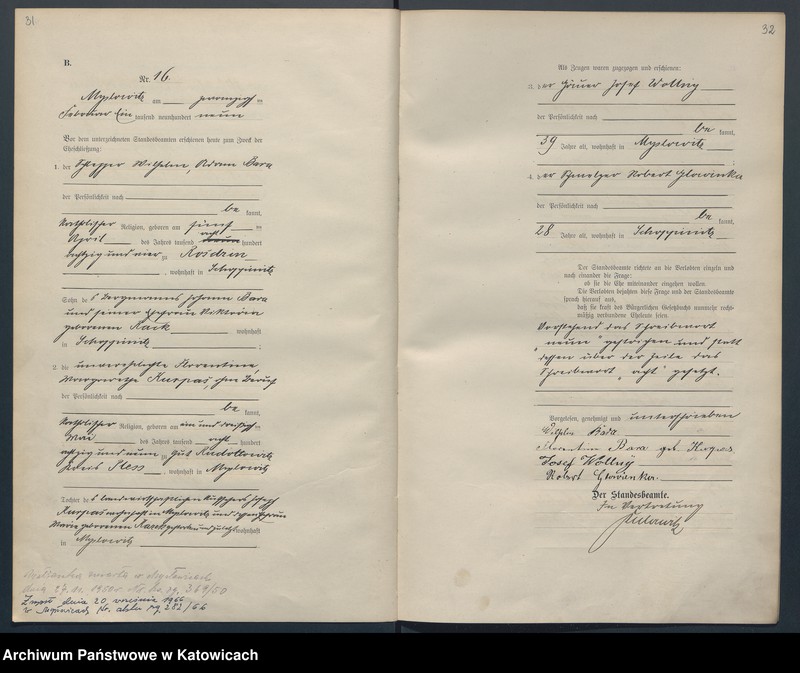 31
B.
Nr. 16.
Myslowitz am zwanzigsten
Februar Ein tausend neunhundert neun
Vor dem unterzeichneten Standesbeamten erschienen heute zum Zweck der
Eheschließung:
1. der Schlepper Wilhelm, Adam Bara
der Persönlichkeit nach
be kannt,
katholischer Religion, geboren am fünften
April des Jahres tausend acht neun hundert
achtzig und vier zu Rosdzin
, wohnhaft in Schoppinitz
Sohn des Bergmannes Johann Bara
und seiner Ehefrau Viktoria
geborenen wohnhaft
in Schoppinitz ;
2. die unverehelichte Florentine,
Margarethe Kurpas, ohne Beruf
der Persönlichkeit nach
be kannt,
katholischer Religion, geboren am ein und dreißigsten
Mai des Jahres tausend acht hundert
achtzig und neun zu Gut
Kreis Pless , wohnhaft in Myslowitz
Tochter des landwirtschaftlichen Kutschers Joseph
Kurpas wohnhaft in Myslowitz und Ehefrau
Marie geborenen und zuletzt wohnhaft
in Myslowitz
zmarła w Mysłowicach
dnia
dnia 20 września 1966
w Nr. aktu 282/66
32
Als Zeugen waren zugezogen und erschienen:
3. der Häuer Josef Wollny
der Persönlichkeit nach
be kannt,
39 Jahre alt, wohnhaft in Myslowitz ;
4. der Schmelzer Robert Glowienka
der Persönlichkeit nach
be kannt,
28 Jahre alt, wohnhaft in Schoppinitz
Der Standesbeamte richtete an die Verlobten einzeln und
nach einander die Frage:
ob sie die Ehe miteinander eingehen wollen.
Die Verlobten bejahten diese Frage und der Standesbeamte
sprach hierauf aus,
daß sie kraft des Bürgerlichen Gesetzbuchs nunmehr recht-
mäßig verbundene Eheleute seien.
Vorstehend das Schreibwort
"neun" gestrichen und statt
dessen über der Zeile das
Schreibwort "acht" gesetzt.
Vorgelesen, genehmigt und unterschrieben
Wilhelm Bara
Florentine Bara geb. Kurpas
Josef Wollny
Robert Glowienka.
Der Standesbeamte.
In Vertretung
Archiwum Państwowe w Katowicach